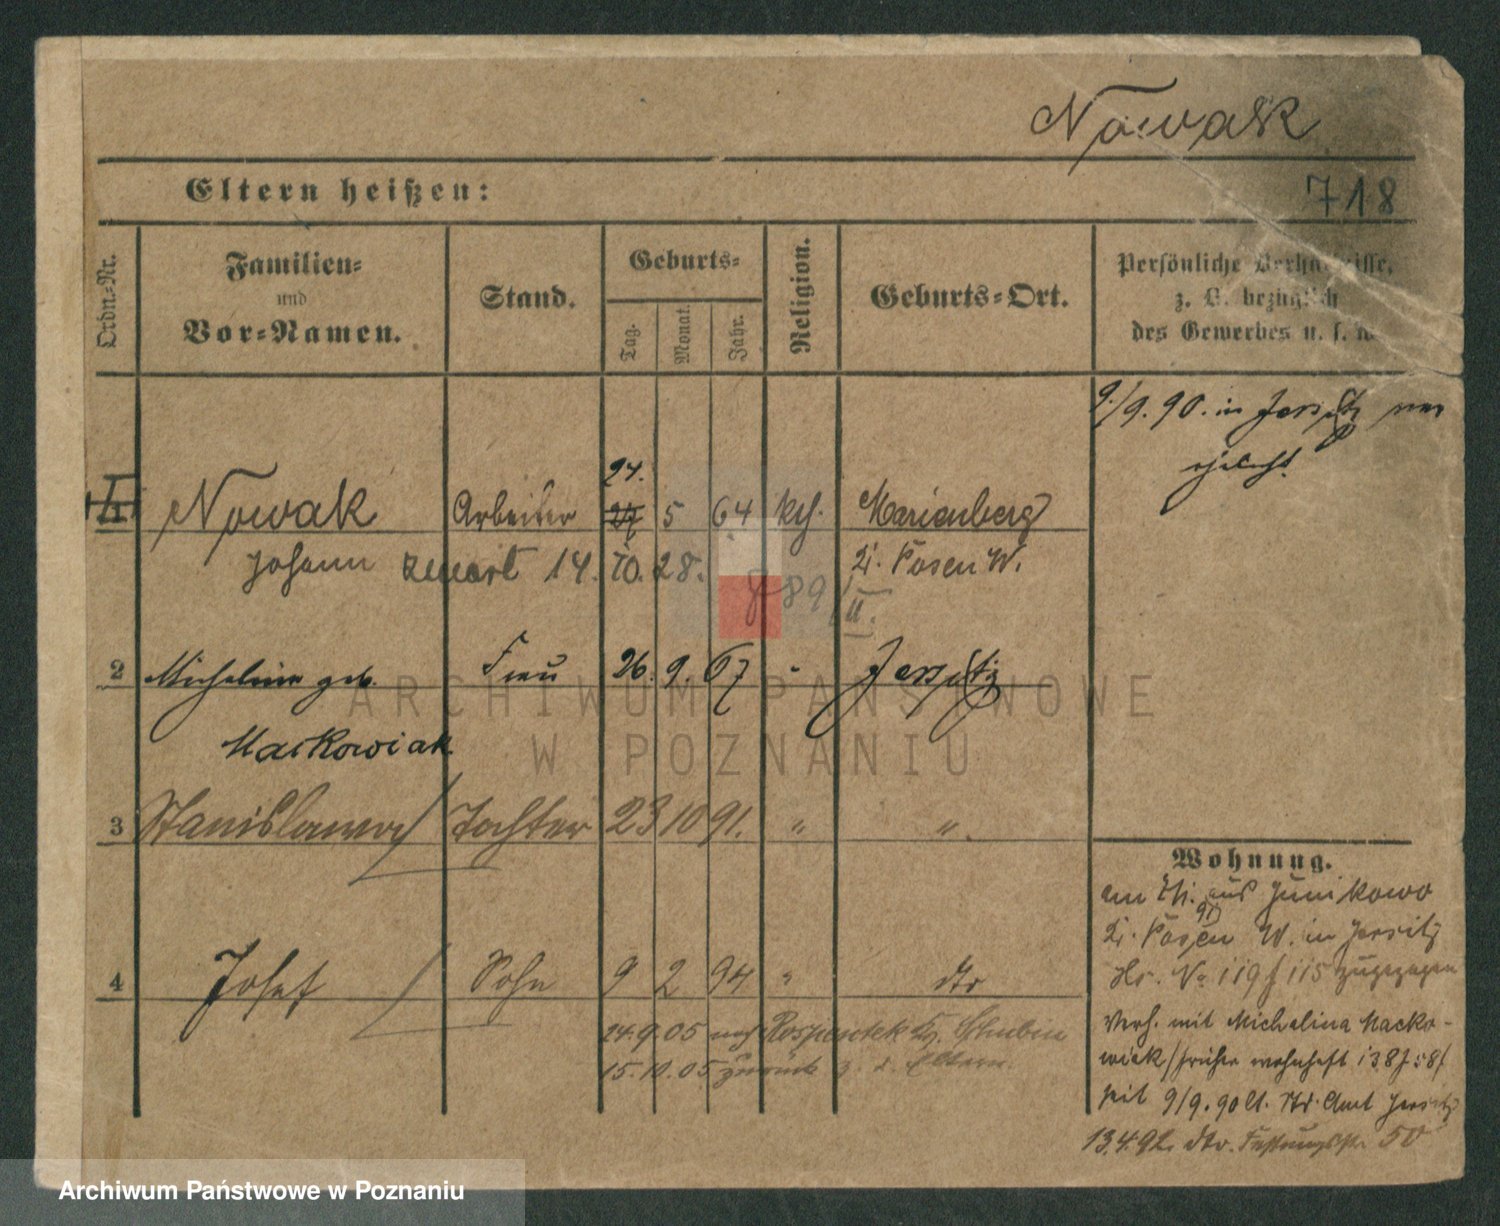 Nowak
718
Eltern heißen:
Ordn.-Nr.
Familien-
und
Vor-Namen.
Stand.
Geburts-
Tag.
Monat.
Jahr.
Religion.
Geburts-Ort.
Persönliche Verhältnisse,
z. B. bezüglich
des Gewerbes u. s. w.
9/9. 90. in Jersitz ver
ehelicht.
24.
Nowak Arbeiter 27 5 64 kth. Marienberg
Johann 14. 10. 28. Kr. Posen W.
89 II.
2 Micheline geb. Frau 26. 9. 67 " Jersitz
Mackowiak
3 Stanislawa Tochter 23 10 91. " "
4 Josef Sohn 9 2 94 " dto
24.9.05 nach Rospientek Kr. Schubin
15.10.05 zurück z. d. Eltern.
Wohnung.
am aus Junikowo
91
Kr. Posen W. in Jersitz
No 119/115 zugezogen
Verh. mit Michalina Macko-
wiak / früher wohnhaft 138/58/
seit 9/9. 90 lt. St. Amt Jersitz
13.4.92. dto. Festungsstr. 50
ARCHIWUM PAŃSTWOWE
W POZNANIU
Archiwum Państwowe w Poznaniu